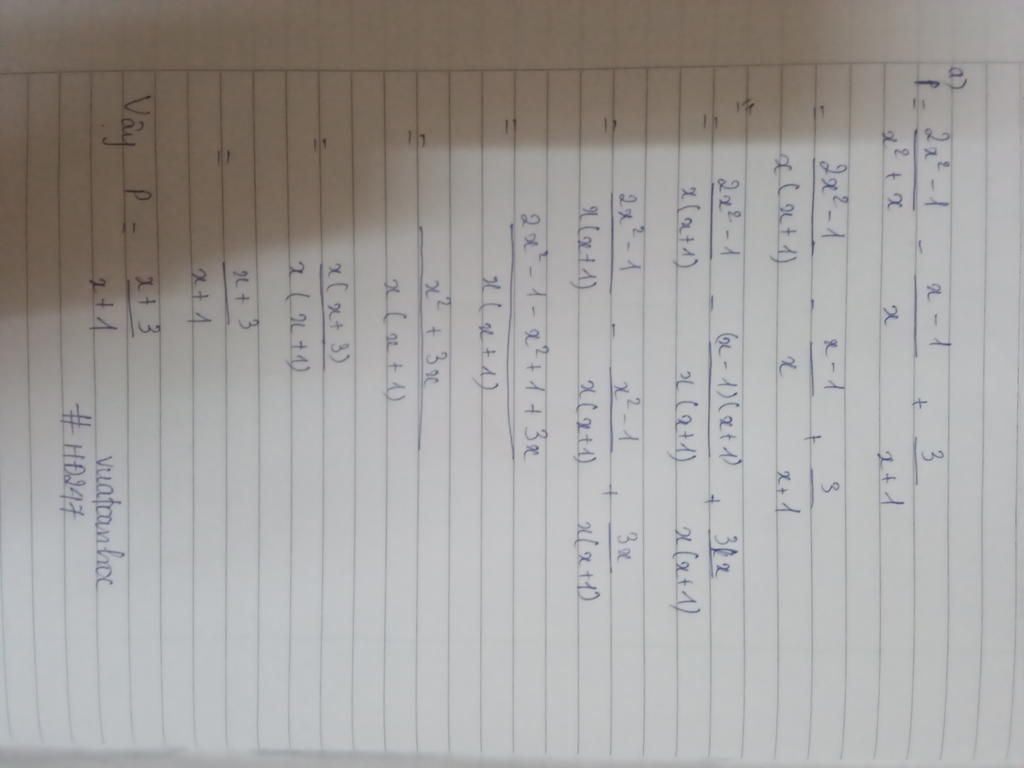 a)
P = \frac{2x² - 1}{x² + x} - \frac{x - 1}{x} + \frac{3}{x + 1}
= \frac{2x² - 1}{x(x + 1)} - \frac{x - 1}{x} + \frac{3}{x + 1}
= \frac{2x² - 1}{x(x + 1)} - \frac{(x - 1)(x + 1)}{x(x + 1)} + \frac{3x}{x(x + 1)}
= \frac{2x² - 1}{x(x + 1)} - \frac{x² - 1}{x(x + 1)} + \frac{3x}{x(x + 1)}
= \frac{2x² - 1 - x² + 1 + 3x}{x(x + 1)}
= \frac{x² + 3x}{x(x + 1)}
= \frac{x(x + 3)}{x(x + 1)}
= \frac{x + 3}{x + 1}
Vây P = \frac{x + 3}{x + 1}
vuatoanhoc
# HĐ247